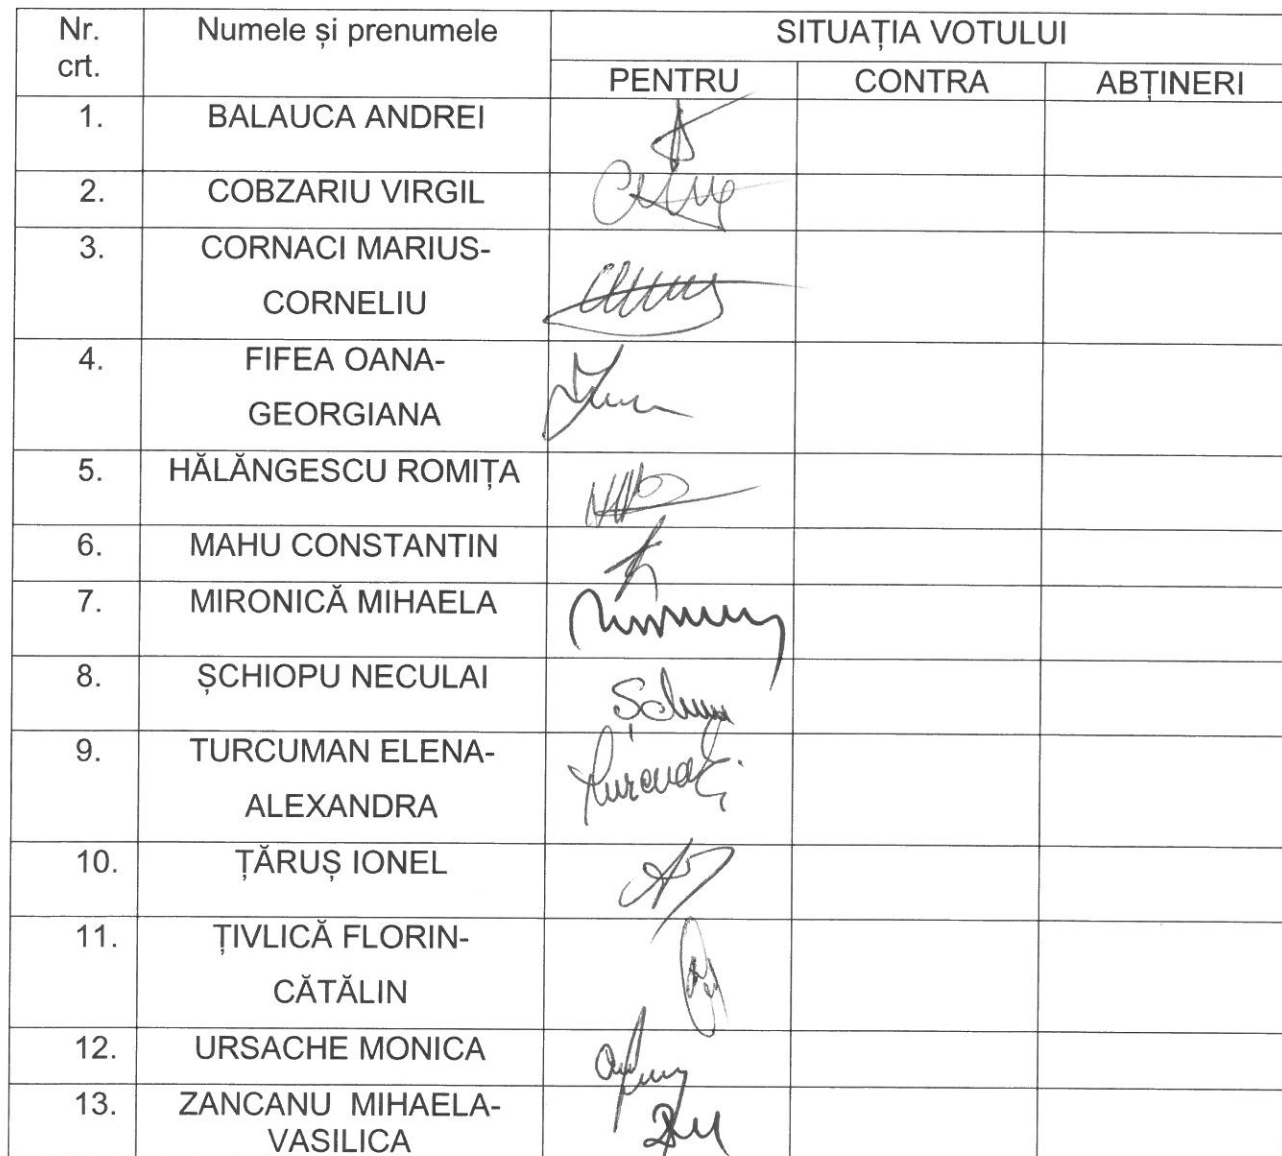 Nr. Numele și prenumele SITUAȚIA VOTULUI
crt. PENTRU CONTRA ABȚINERI
1. BALAUCA ANDREI
2. COBZARIU VIRGIL
3. CORNACI MARIUS-
CORNELIU
4. FIFEA OANA-
GEORGIANA
5. HĂLĂNGESCU ROMIȚA
6. MAHU CONSTANTIN
7. MIRONICĂ MIHAELA
8. ȘCHIOPU NECULAI
9. TURCUMAN ELENA-
ALEXANDRA
10. ȚĂRUȘ IONEL
11. ȚIVLICĂ FLORIN-
CĂTĂLIN
12. URSACHE MONICA
13. ZANCANU MIHAELA-
VASILICA